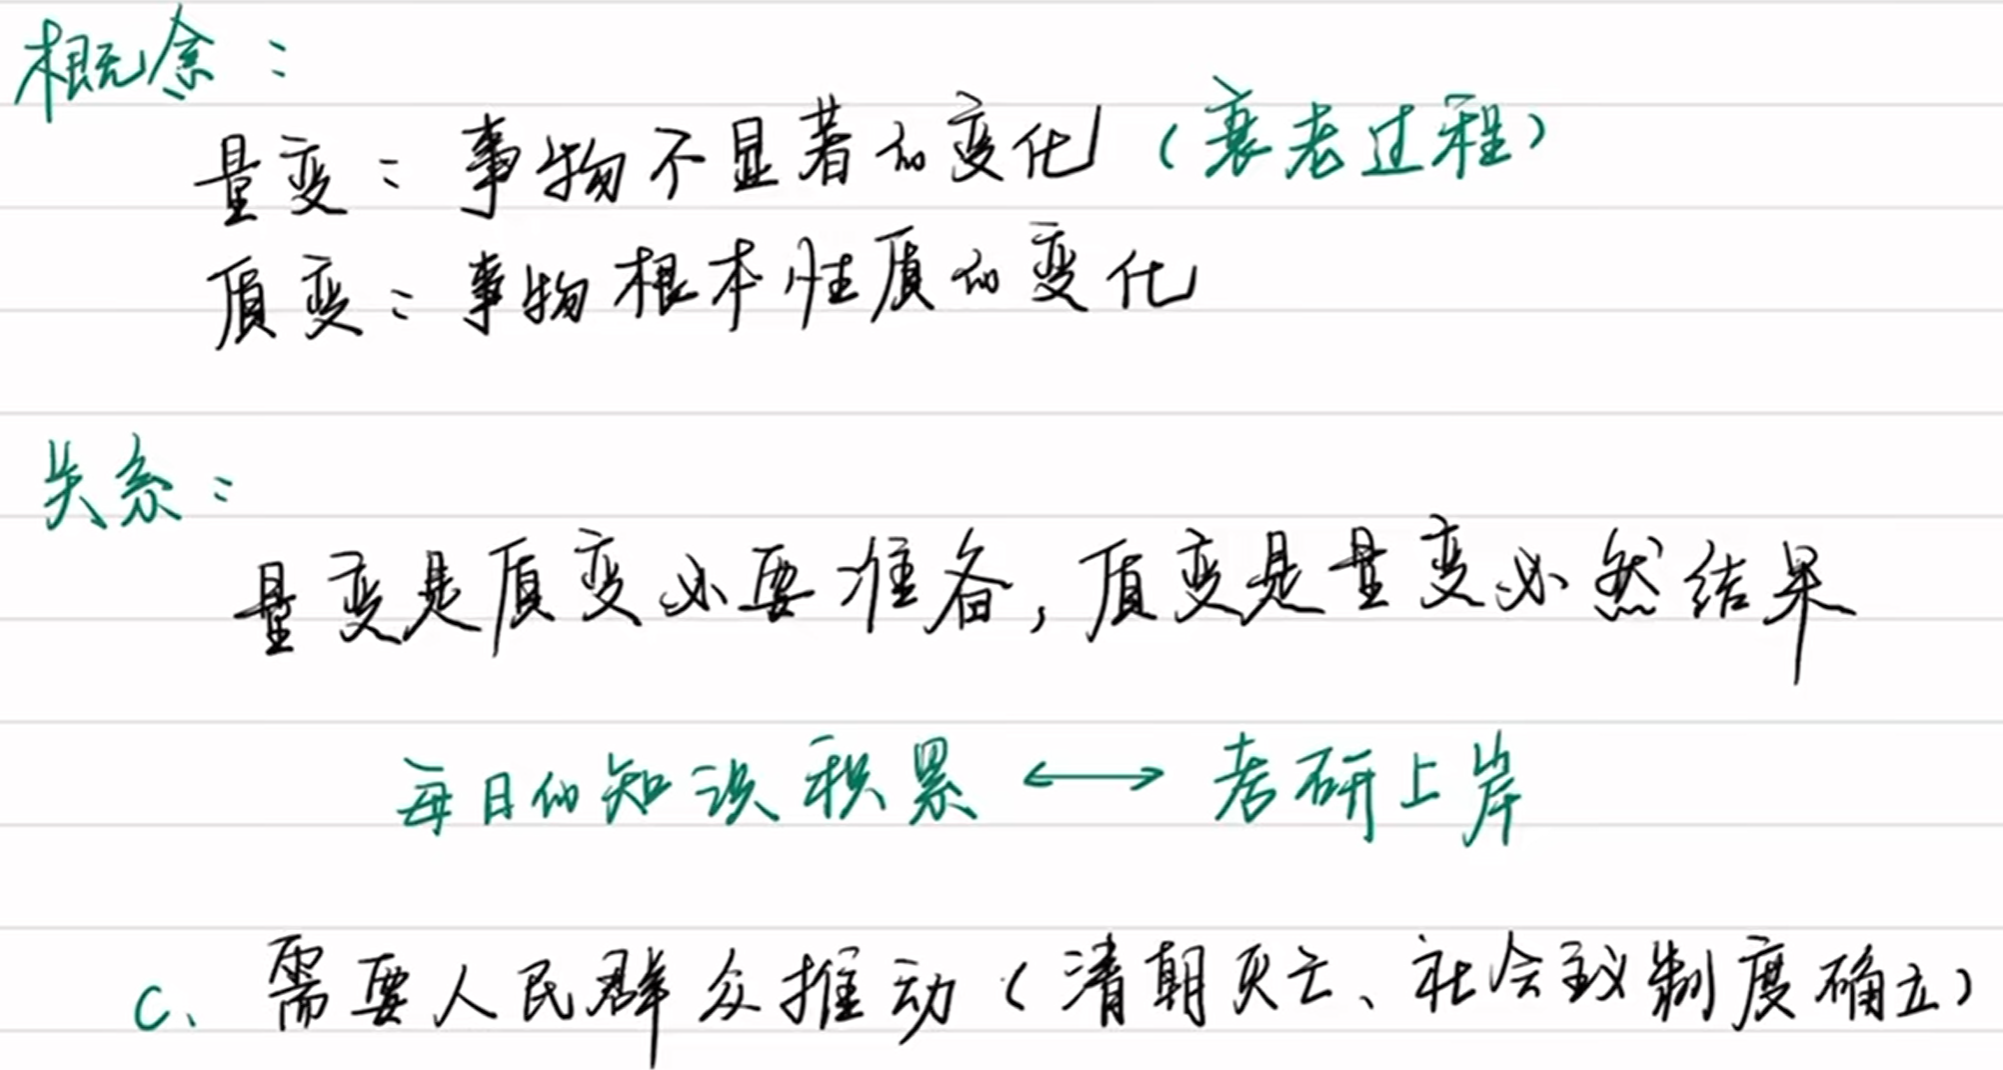 概念：
量变：事物不显著的变化（衰老过程）
质变：事物根本性质的变化
关系：
量变是质变必要准备，质变是量变必然结果
每日的知识积累 ⟷ 考研上岸
C、需要人民群众推动（清朝灭亡、社会主义制度确立）